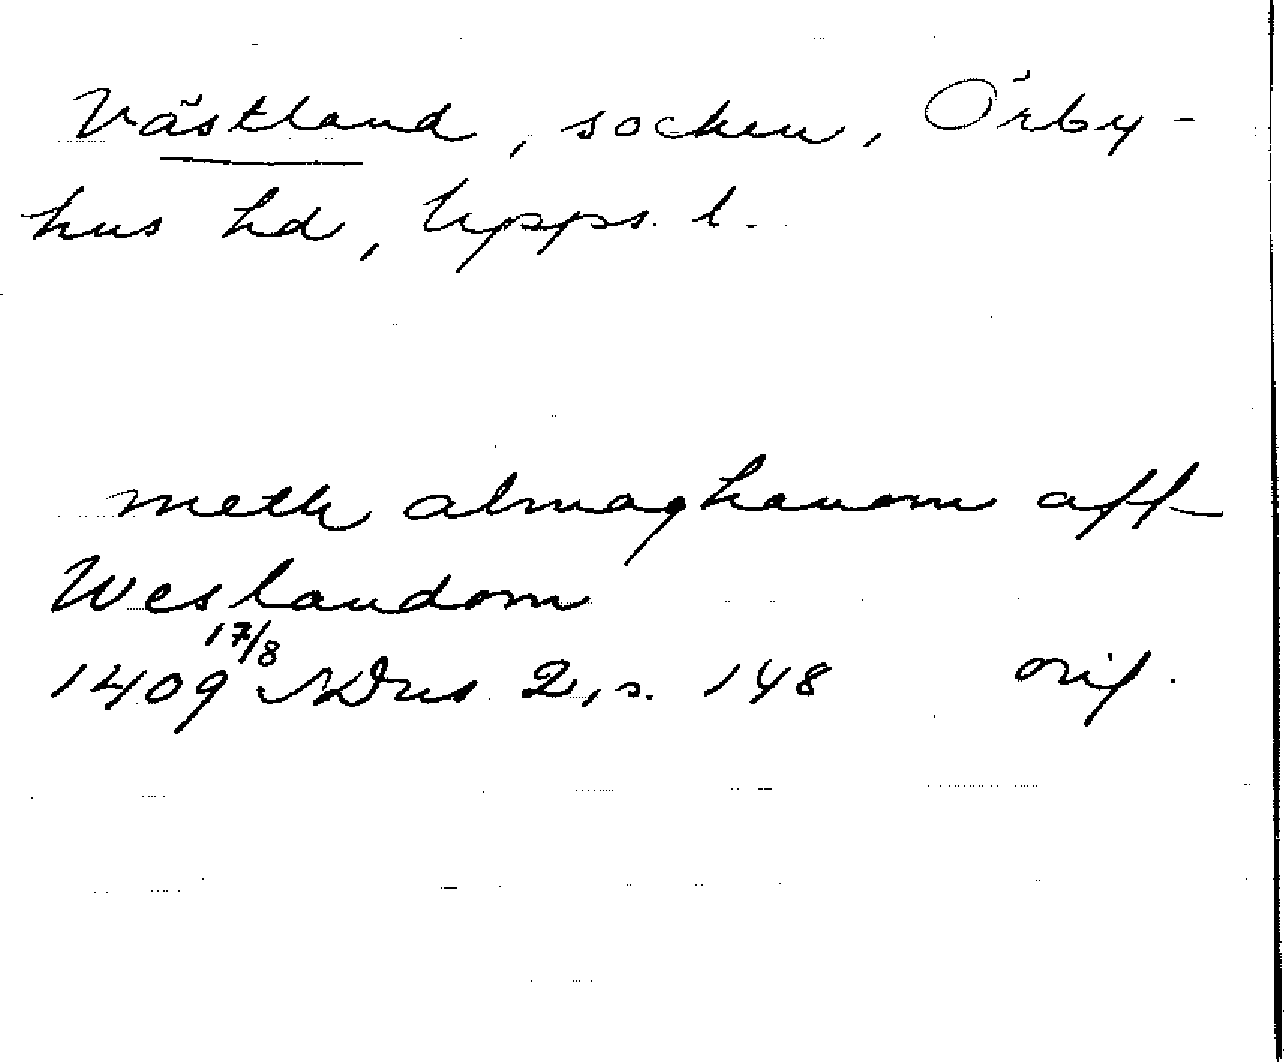 Västland, socken, Örby-
hus hd, Upps. l.
meth almoghanom aff
Weslandom
1409 17/8 SDns 2, s. 148 orig.